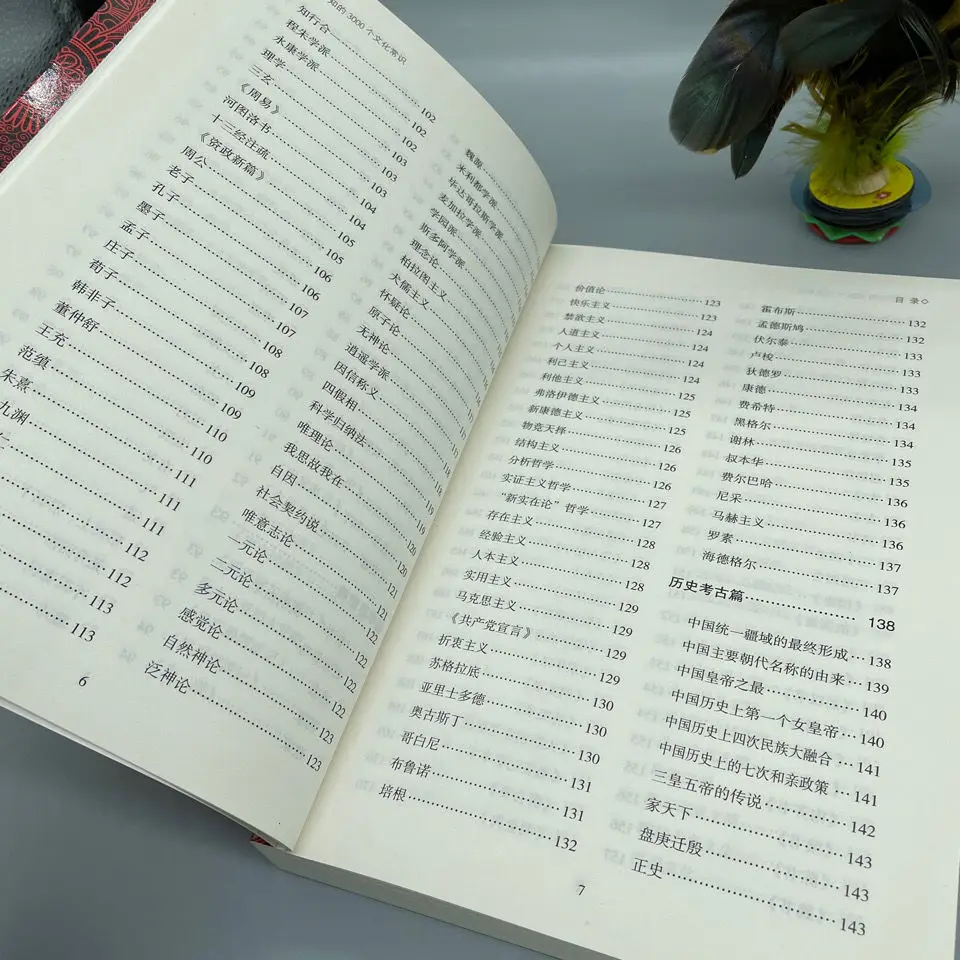 知的 3000 个文化常识
知行合 102
程朱学派 102
永康学派 102
理学 103
三玄 103
《周易》 103
河图洛书 104
十三经注疏 104
《资政新篇》 105
周公 105
老子 106
孔子 106
墨子 107
孟子 107
庄子 108
荀子 108
韩非子 109
董仲舒 109
王充 110
范缜 110
朱熹 111
九渊 111
112
112
113
113
魏源
米利都学派
毕达哥拉斯学派
麦加拉学派
学园派
斯多阿学派
理念论
柏拉图主义
犬儒主义
怀疑论
原子论
无神论
逍遥学派
因信称义
四假相
科学归纳法
唯理论
我思故我在
自因
社会契约说
唯意志论
一元论 121
二元论 122
多元论 122
感觉论 122
自然神论 123
泛神论 123
6
目 录◇
价值论 123
快乐主义 123
禁欲主义 124
人道主义 124
个人主义 124
利己主义 124
利他主义 125
弗洛伊德主义 125
新康德主义 125
物竞天择 126
结构主义 126
分析哲学 126
实证主义哲学 127
“新实在论”哲学 127
存在主义 128
经验主义 128
人本主义 128
实用主义 129
马克思主义 129
《共产党宣言》 129
折衷主义 129
苏格拉底 130
亚里士多德 130
奥古斯丁 130
哥白尼 131
布鲁诺 131
培根 132
霍布斯 132
孟德斯鸠 132
伏尔泰 133
卢梭 133
狄德罗 133
康德 134
费希特 134
黑格尔 134
谢林 135
叔本华 135
费尔巴哈 136
尼采 136
马赫主义 136
罗素 137
海德格尔 137
历史考古篇 138
中国统一疆域的最终形成 138
中国主要朝代名称的由来 139
中国皇帝之最 140
中国历史上第一个女皇帝 140
中国历史上四次民族大融合 141
中国历史上的七次和亲政策 141
三皇五帝的传说 142
家天下 143
盘庚迁殷 143
正史 143
7